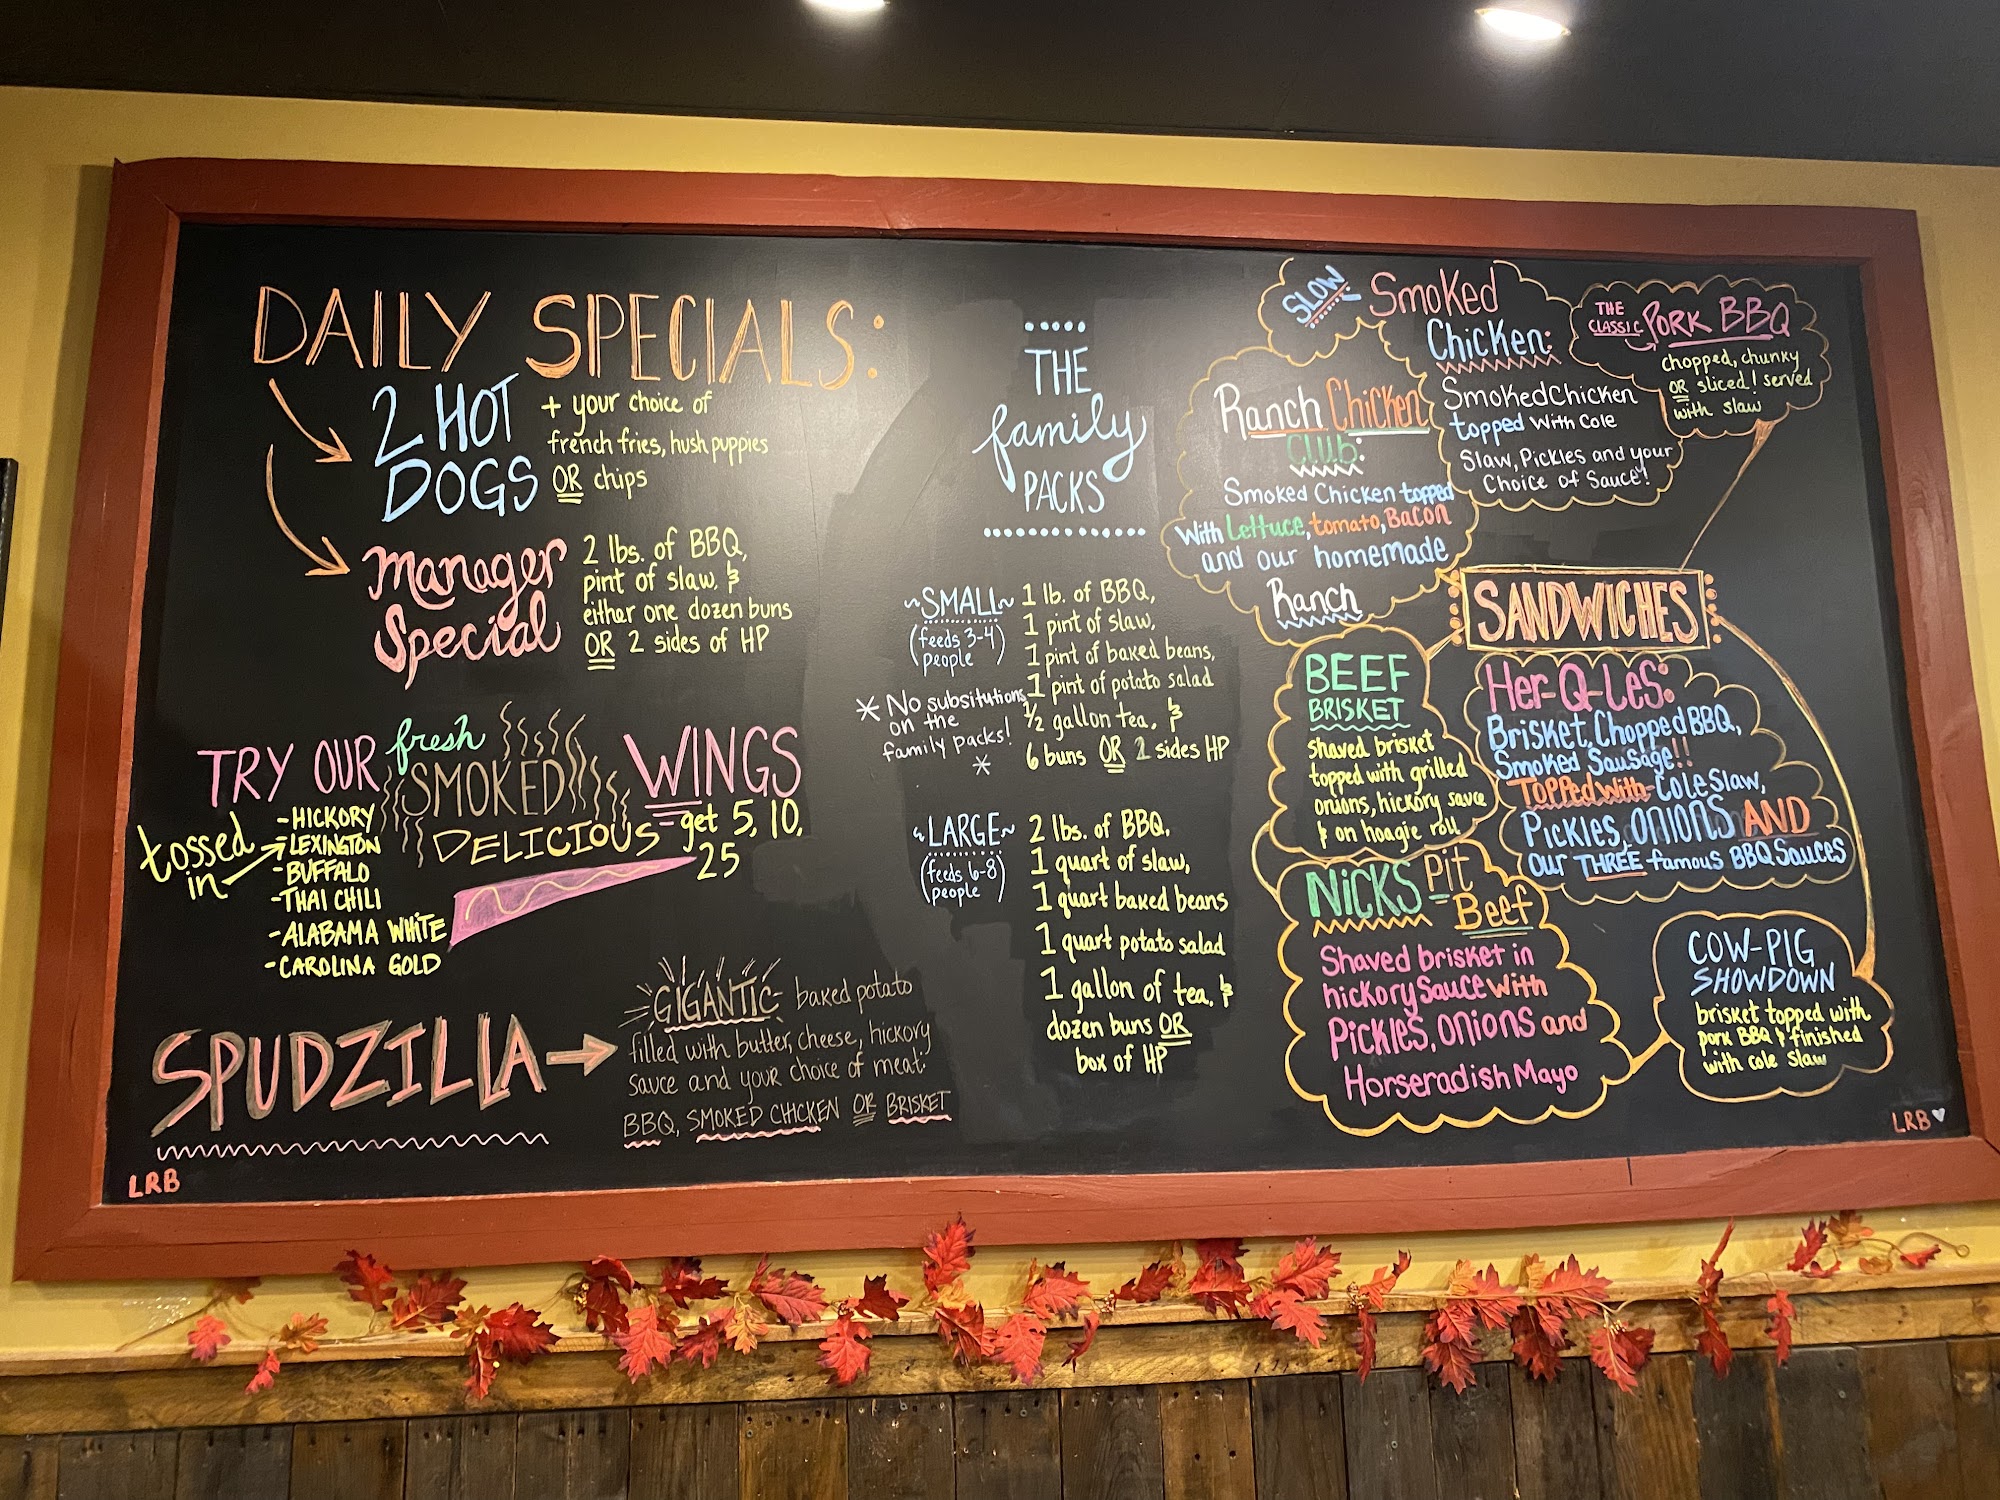 DAILY SPECIALS:
2 HOT
DOGS
+ your choice of
french fries, hush puppies
OR chips
Manager
Special
2 lbs. of BBQ,
pint of slaw, &
either one dozen buns
OR 2 sides of HP
TRY OUR fresh
SMOKED
DELICIOUS
WINGS
- get 5, 10,
25
tossed
in
- HICKORY
- LEXINGTON
- BUFFALO
- THAI CHILI
- ALABAMA WHITE
- CAROLINA GOLD
SPUDZILLA
GIGANTIC baked potato
filled with butter, cheese, hickory
sauce and your choice of meat:
BBQ, SMOKED CHICKEN OR BRISKET
LRB
THE
family
PACKS
~SMALL~
(feeds 3-4)
people
1 lb. of BBQ,
1 pint of slaw,
1 pint of baked beans,
1 pint of potato salad
1/2 gallon tea, &
6 buns OR 2 sides HP
* No subsitutions
on the
family packs!
*
~LARGE~
(feeds 6-8)
people
2 lbs. of BBQ,
1 quart of slaw,
1 quart baked beans
1 quart potato salad
1 gallon of tea, &
dozen buns OR
box of HP
SLOW Smoked
Chicken:
Smoked Chicken
topped With Cole
Slaw, Pickles and your
Choice of Sauce!
THE
CLASSIC PORK BBQ
chopped, chunky
OR sliced! served
with slaw
Ranch Chicken
CLUB:
Smoked Chicken topped
With Lettuce, tomato, Bacon
and our homemade
Ranch
SANDWICHES
BEEF
BRISKET
shaved brisket
topped with grilled
onions, hickory sauce
& on hoagie roll
Her-Q-Les:
Brisket, Chopped BBQ,
Smoked Sausage!!
Topped With Cole Slaw,
Pickles, Onions AND
Our THREE famous BBQ Sauces
NICKS Pit
Beef
Shaved brisket in
hickory Sauce with
Pickles, Onions and
Horseradish Mayo
COW-PIG
SHOWDOWN
brisket topped with
pork BBQ & finished
with cole slaw
LRB